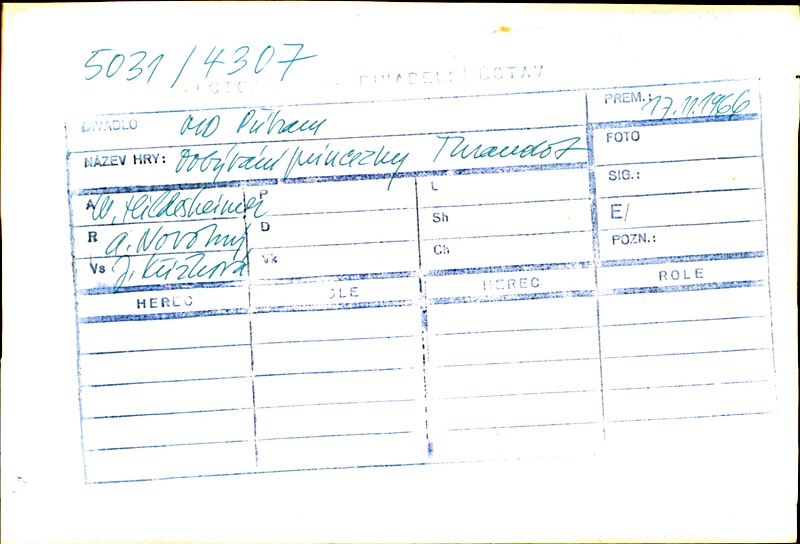 5031/4307
DIVADELNÍ ÚSTAV
DIVADLO OD Příbram
PREM.: 17.11.1966
NÁZEV HRY: Dobývání princezny Turandot
FOTO
SIG.:
E/
POZN.:
A W. Hildesheimer
P
L
R A. Novotný
D
Sh
Vs J. Křížková
Vk
Ch
HEREC
ROLE
HEREC
ROLE